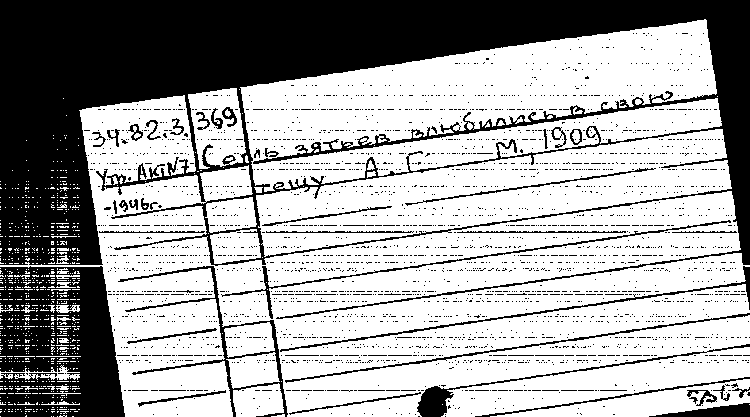 34.82.3. 369
Семь зятьев влюбились в свою
Утр. Акт N7
тещу А. Г. М., 1909.
-1946г.